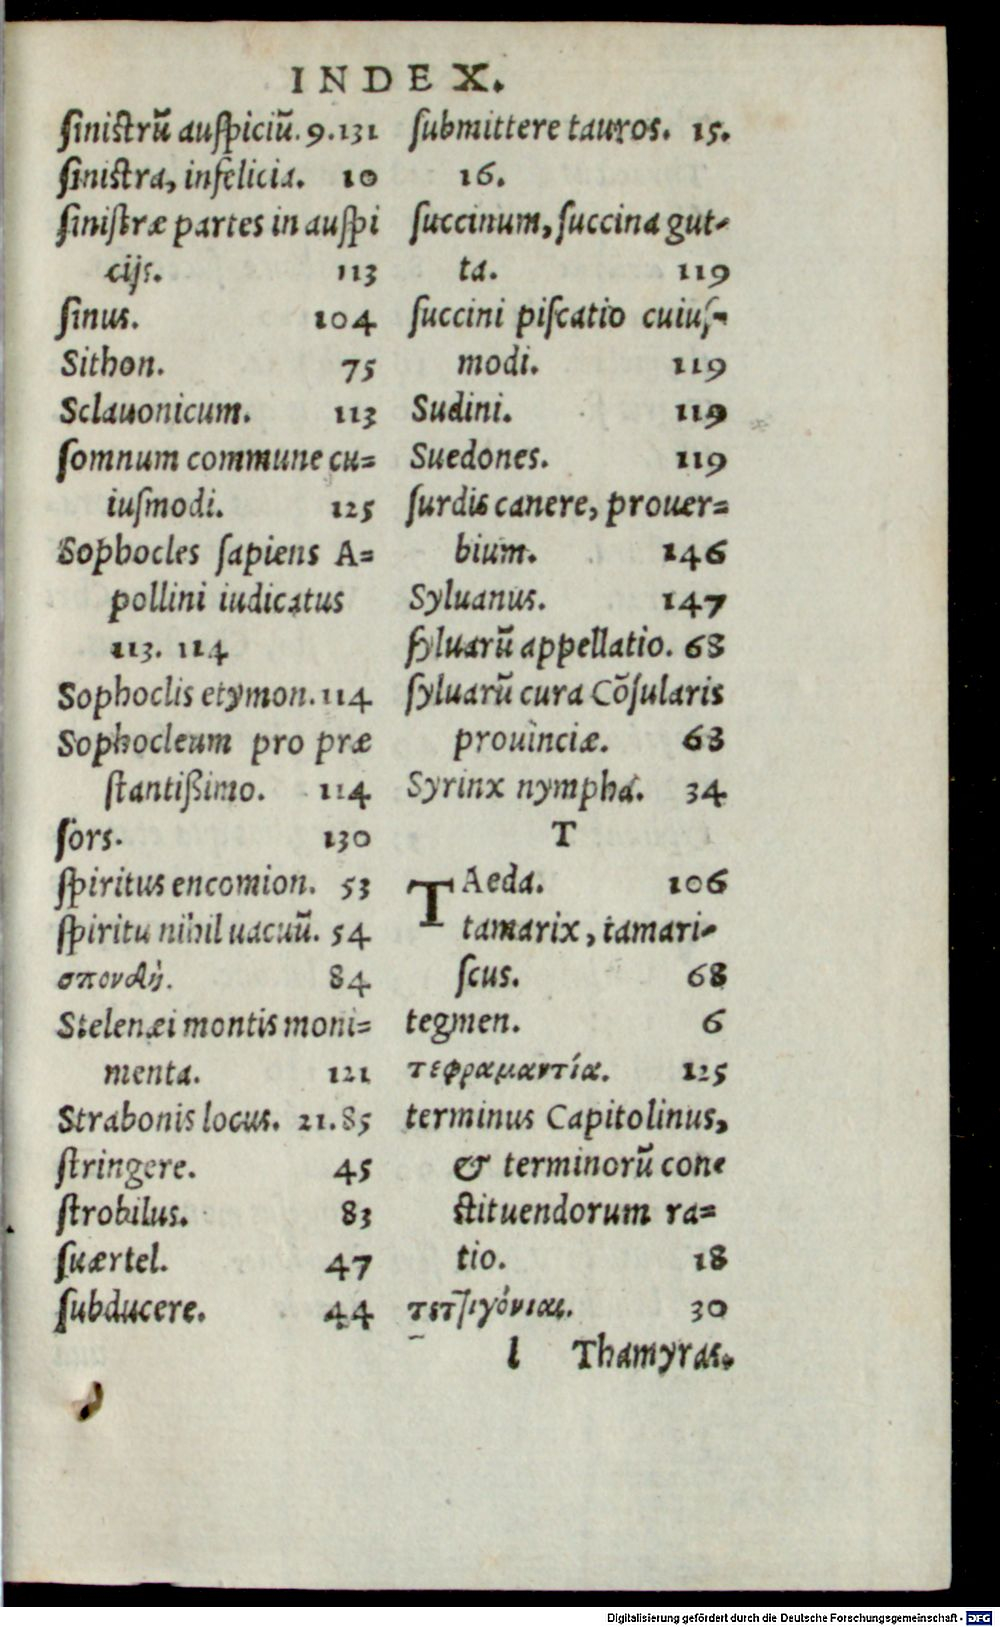 INDEX.
ſiniſtrũ auſpiciũ. 9.131
ſiniſtra, infelicia. 10
ſiniſtræ partes in auſpi
cijs. 113
ſinus. 104
Sithon. 75
Sclauonicum. 113
ſomnum commune cu=
iuſmodi. 125
Sophocles ſapiens A=
pollini iudicatus
113. 114
Sophoclis etymon. 114
Sophocleum pro præ
ſtantißimo. 114
ſors. 130
ſpiritus encomion. 53
ſpiritu nihil uacuũ. 54
σπονδὴ. 84
Stelenæi montis moni=
menta. 121
Strabonis locus. 21.85
ſtringere. 45
ſtrobilus. 83
ſuærtel. 47
ſubducere. 44
ſubmittere tauros. 15.
16.
ſuccinum, ſuccina gut-
ta. 119
ſuccini piſcatio cuiuſ-
modi. 119
Sudini. 119
Suedones. 119
ſurdis canere, prouer=
bium. 146
Syluanus. 147
ſyluarũ appellatio. 63
ſyluarũ cura Cõſularis
prouinciæ. 63
Syrinx nympha. 34
T
TAeda. 106
tamarix, tamari-
ſcus. 68
tegmen. 6
τεφραμαντία. 125
terminus Capitolinus,
& terminorũ con-
ſtituendorum ra=
tio. 18
τετλιγόνιαι. 30
l Thamyras.
Digitalisierung gefördert durch die Deutsche Forschungsgemeinschaft - DFG